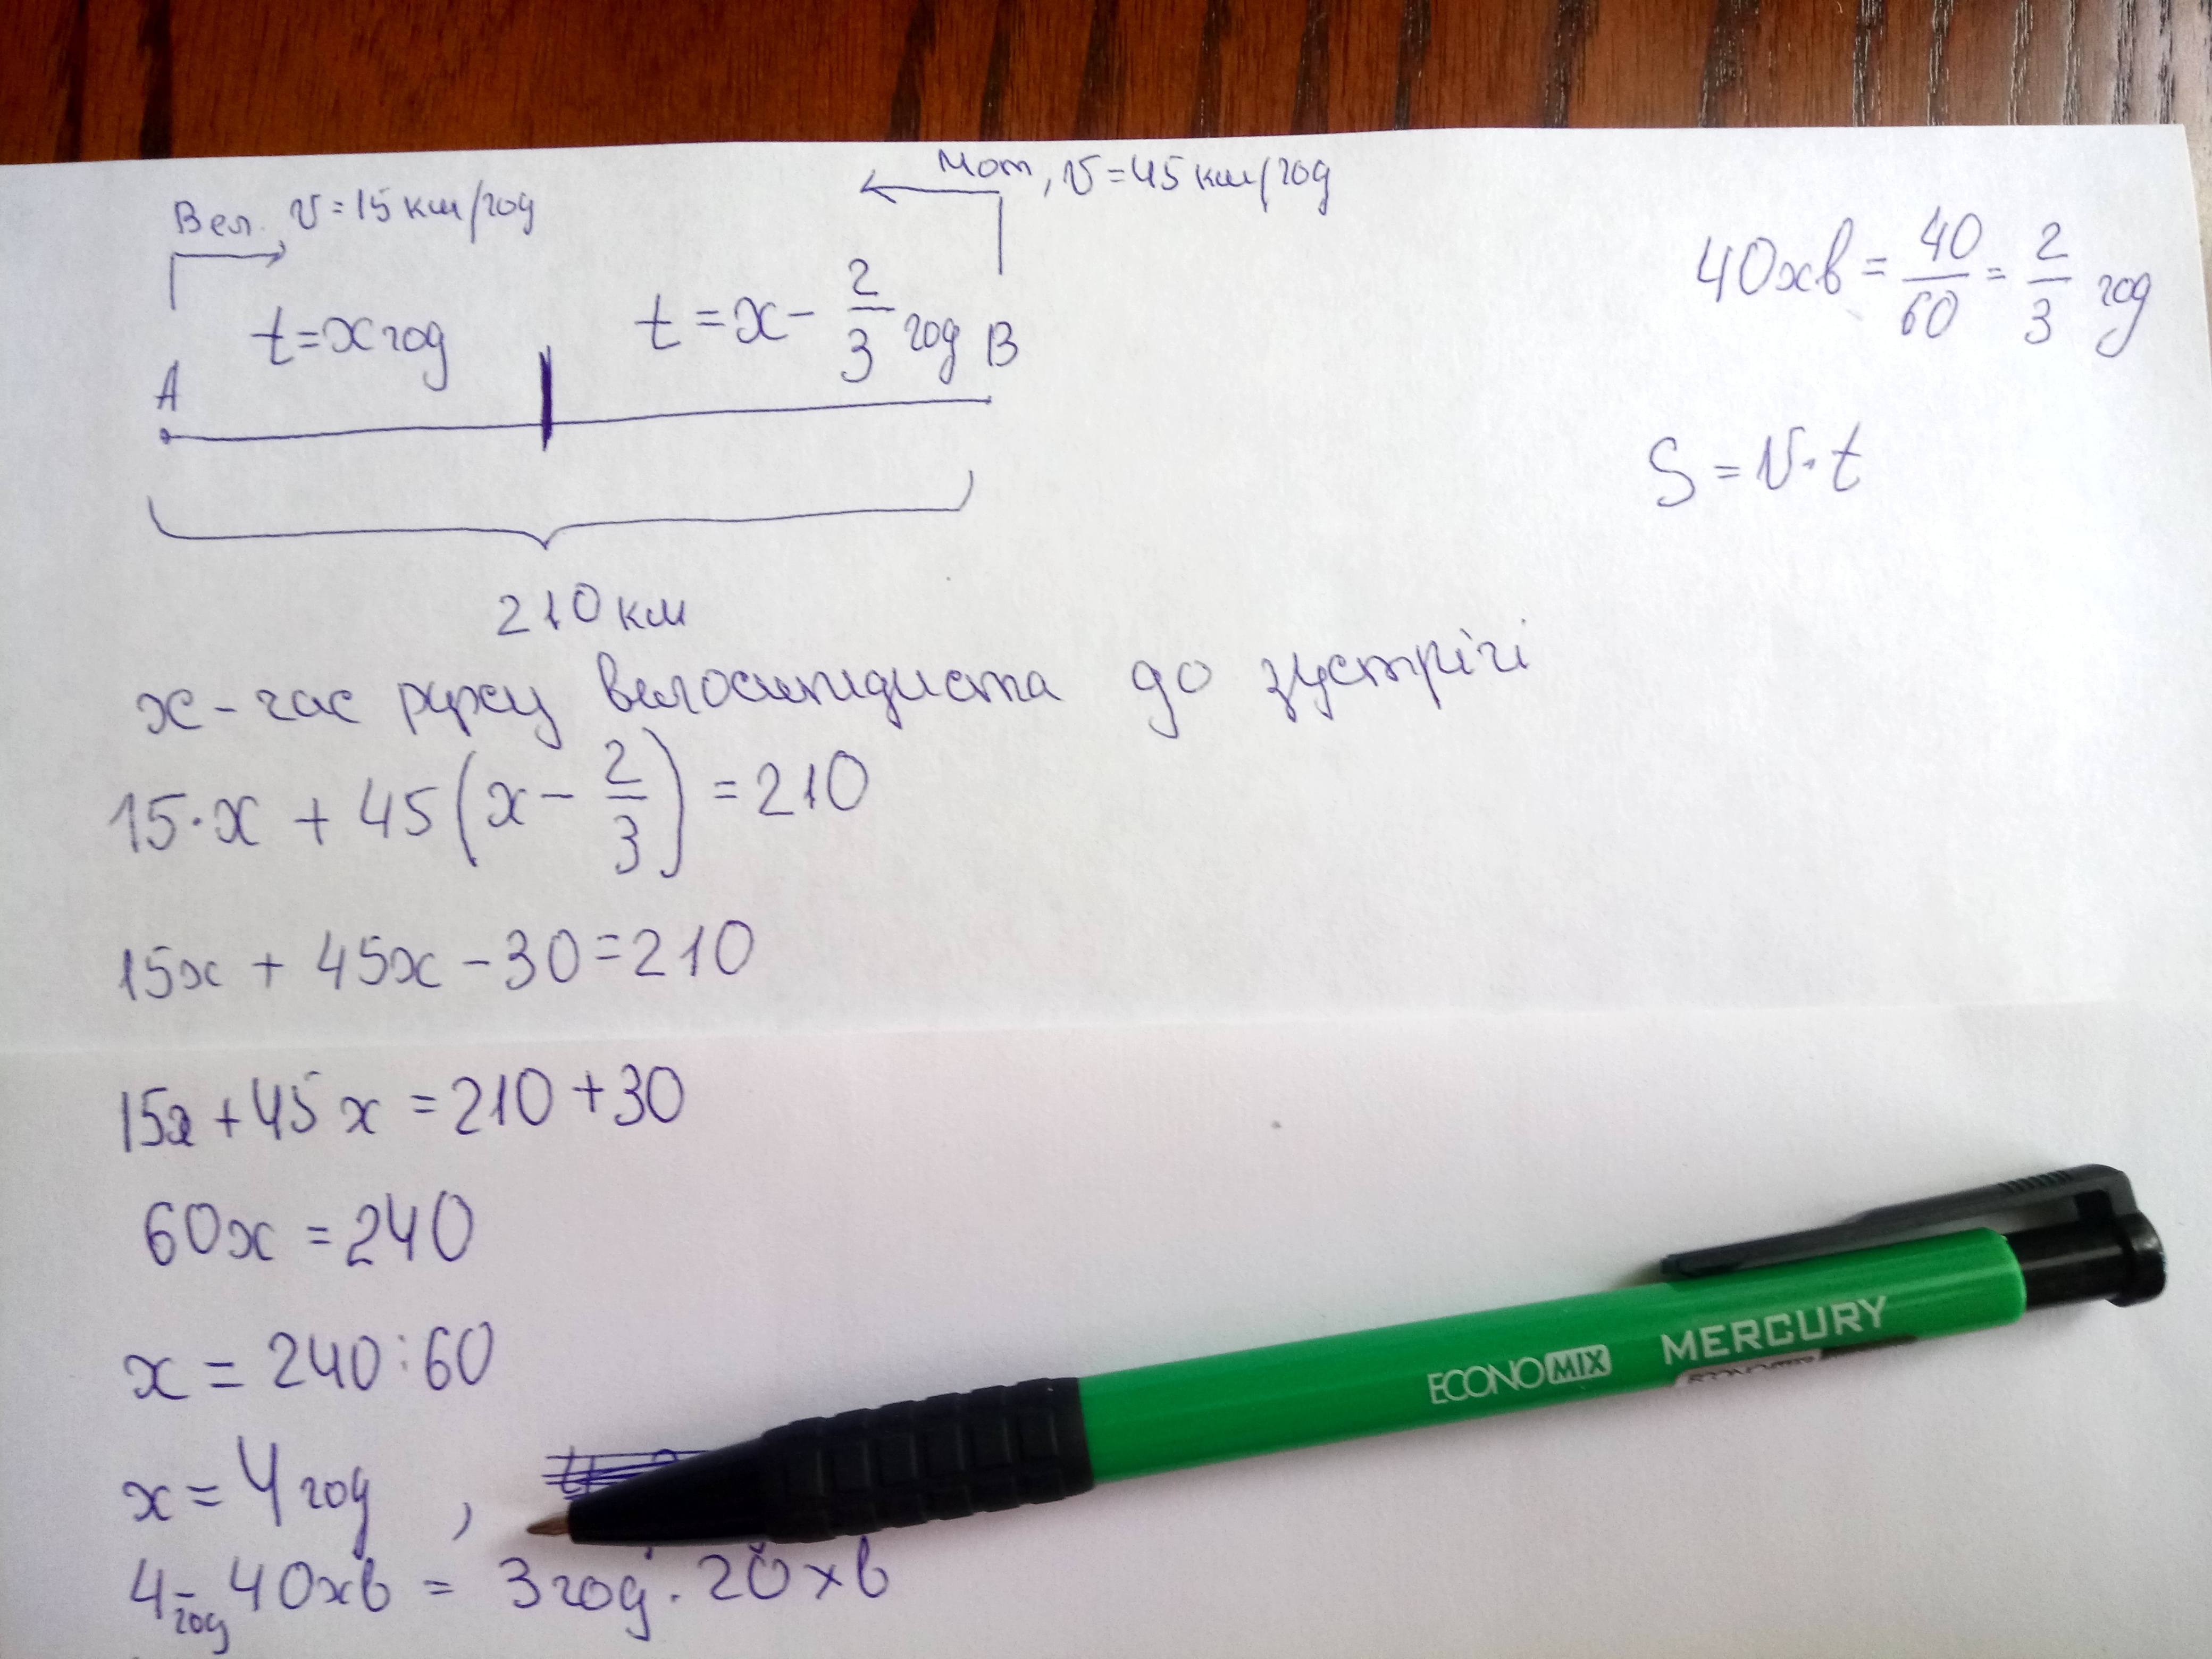 Вел. V = 15 км/год
Мот, V = 45 км/год
t = x год
t = x - 2/3 год
A
B
210 км
40хв = 40/60 = 2/3 год
S = V · t
x - час руху велосипидиста до зустрічі
15 · x + 45 (x - 2/3) = 210
15x + 45x - 30 = 210
15x + 45x = 210 + 30
60x = 240
x = 240 : 60
x = 4 год ,
4 год - 40хв = 3 год. 20 хв
ECONOMIX MERCURY